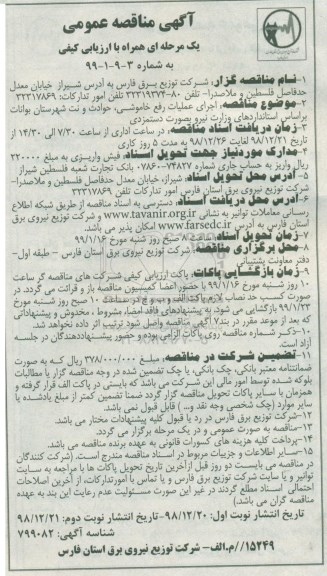 آگهی مناقصه عمومی
یک مرحله ای همراه با ارزیابی کیفی
به شماره ۳-۹-۱-۹۹
۱-نام مناقصه گزار: شرکت توزیع برق فارس به آدرس شیراز خیابان معدل
حدفاصل فلسطین و ملاصدرا- تلفن: ۸۰-۳۲۳۱۹۳۷۴ تلفن امور تدارکات: ۳۲۳۱۷۸۶۹
۲-موضوع مناقصه: اجرای عملیات رفع خاموشی، حوادث و نت شهرستان بوانات
براساس استانداردهای وزارت نیرو بصورت دستمزدی
۳-زمان دریافت اسناد مناقصه: در ساعت اداری از ساعت ۷/۳۰ الی ۱۴/۳۰ از
تاریخ ۹۸/۱۲/۲۱ لغایت ۹۸/۱۲/۲۶ به مدت ۵ روز کاری
۴-مدارک موردنیاز جهت تحویل اسناد: فیش واریزی به مبلغ ۲۲۰۰۰۰
ریال واریز به حساب جاری ۷۸۶۰۰۷۴۸۲۷ بانک تجارت شعبه فلسطین شیراز
۵-آدرس محل تحویل اسناد: شیراز، خیابان معدل حدفاصل فلسطین و ملاصدرا-
شرکت توزیع نیروی برق استان فارس امور تدارکات تلفن ۳۲۳۱۷۸۶۹
۶-آدرس محل دریافت اسناد: دسترسی به اسناد مناقصه از طریق شبکه اطلاع
رسانی معاملات توانیر به نشانی www.tavanir.org.ir و شرکت توزیع نیروی برق
استان فارس به آدرس www.farsedc.ir امکان پذیر می باشد.
۷-زمان تحویل اسناد: ساعت ۸ صبح روز شنبه مورخ ۹۹/۱/۱۶
۸-محل برگزاری مناقصه: شرکت توزیع نیروی برق استان فارس - طبقه اول-
دفتر معاونت پشتیبانی
۹-زمان بازگشایی پاکات: پاکت ارزیابی کیفی شرکت های مناقصه گر ساعت
۱۰ روز شنبه مورخ ۹۹/۰۱/۱۶ با حضور اعضا کمیسیون مناقصه باز و قرائت می گردد. در
صورت کسب حد نصاب لازم پاکت الف و ب و ج در ساعت ۱۰ صبح روز شنبه مورخ
۹۹/۱/۲۳ بازگشایی می شود. به پیشنهادهای فاقد امضا، مشروط ، مخدوش و پیشنهاداتی
که بعد از موعد مقرر در بند۷ آگهی مناقصه واصل شود ترتیب اثر داده نخواهد شد.
۱۰-ذکر شماره مناقصه روی پاکات الزامی بوده و حضور پیشنهاددهندگان در جلسه
آزاد است.
۱۱-تضمین شرکت در مناقصه: مبلغ ۳۷۸/۰۰۰/۰۰۰ ریال که به صورت
ضمانتنامه معتبر بانکی، چک بانکی، یا چک تضمین شده در وجه مناقصه گزار یا مطالبات
بلوکه شده توسط امور مالی این شرکت می باشد که بایستی در پاکت الف قرار گرفته و
همزمان با سایر پاکات تحویل مناقصه گزار گردد ضمنا تضمین کمتر از مبلغ یادشده یا
سایر موارد (چک شخصی وجه نقد و... ) قابل قبول نمی باشد.
۱۲-شرکت توزیع برق فارس در رد یا قبول کلیه پیشنهادات مختار می باشد.
۱۳-مناقصه به صورت عمومی و در یک مرحله برگزار می گردد.
۱۴-پرداخت کلیه هزینه های کسورات قانونی به عهده برنده مناقصه می باشد.
۱۵-سایر اطلاعات و جزییات مربوط در اسناد مناقصه مندرج است. (شرکت کنندگان
در مناقصه می بایست دو روز قبل ازآخرین تاریخ تحویل پاکات ها با مراجعه به سایت
توانیر و یا سایت شرکت توزیع برق فارس و یا تماس با امورتدارکات، از آخرین اصلاحات
احتمالی اسناد مطلع گردند در غیر این صورت مسئولیت عدم رعایت این بند به عهده
مناقصه گران می باشد)
تاریخ انتشار نوبت اول: ۹۸/۱۲/۲۰-تاریخ انتشار نوبت دوم: ۹۸/۱۲/۲۱
شناسه آگهی: ۷۹۹۰۸۲
۱۵۲۴۹//م.الف- شرکت توزیع نیروی برق استان فارس